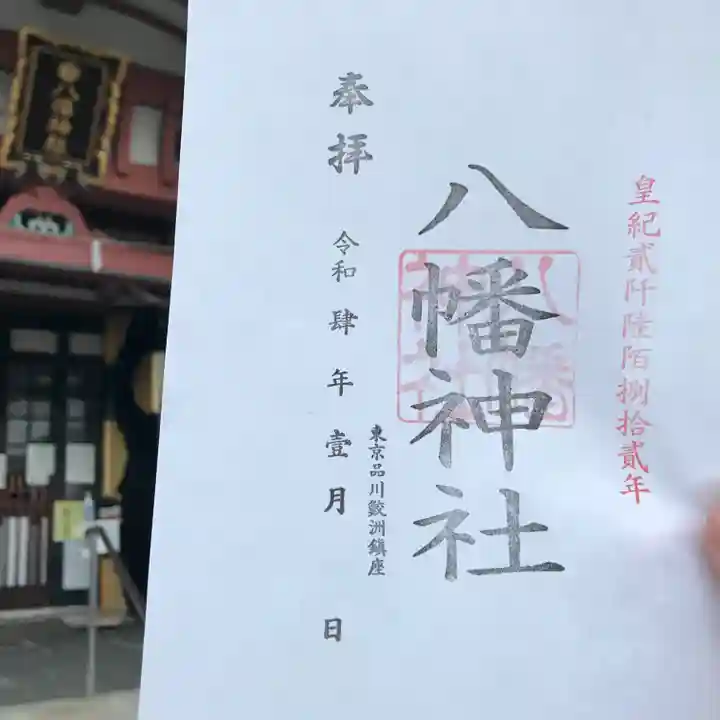 皇紀貳阡陸陌捌拾貳年
八幡神社
東京品川鮫洲鎮座
奉拝
令和肆年壹月 日
八幡神社